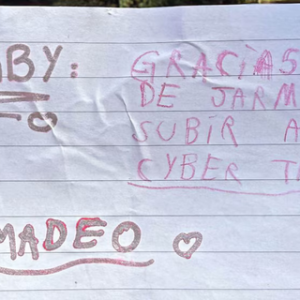 ABY:
GRACIAS
DE JARM
SUBIR A
CYBER T
MADEO